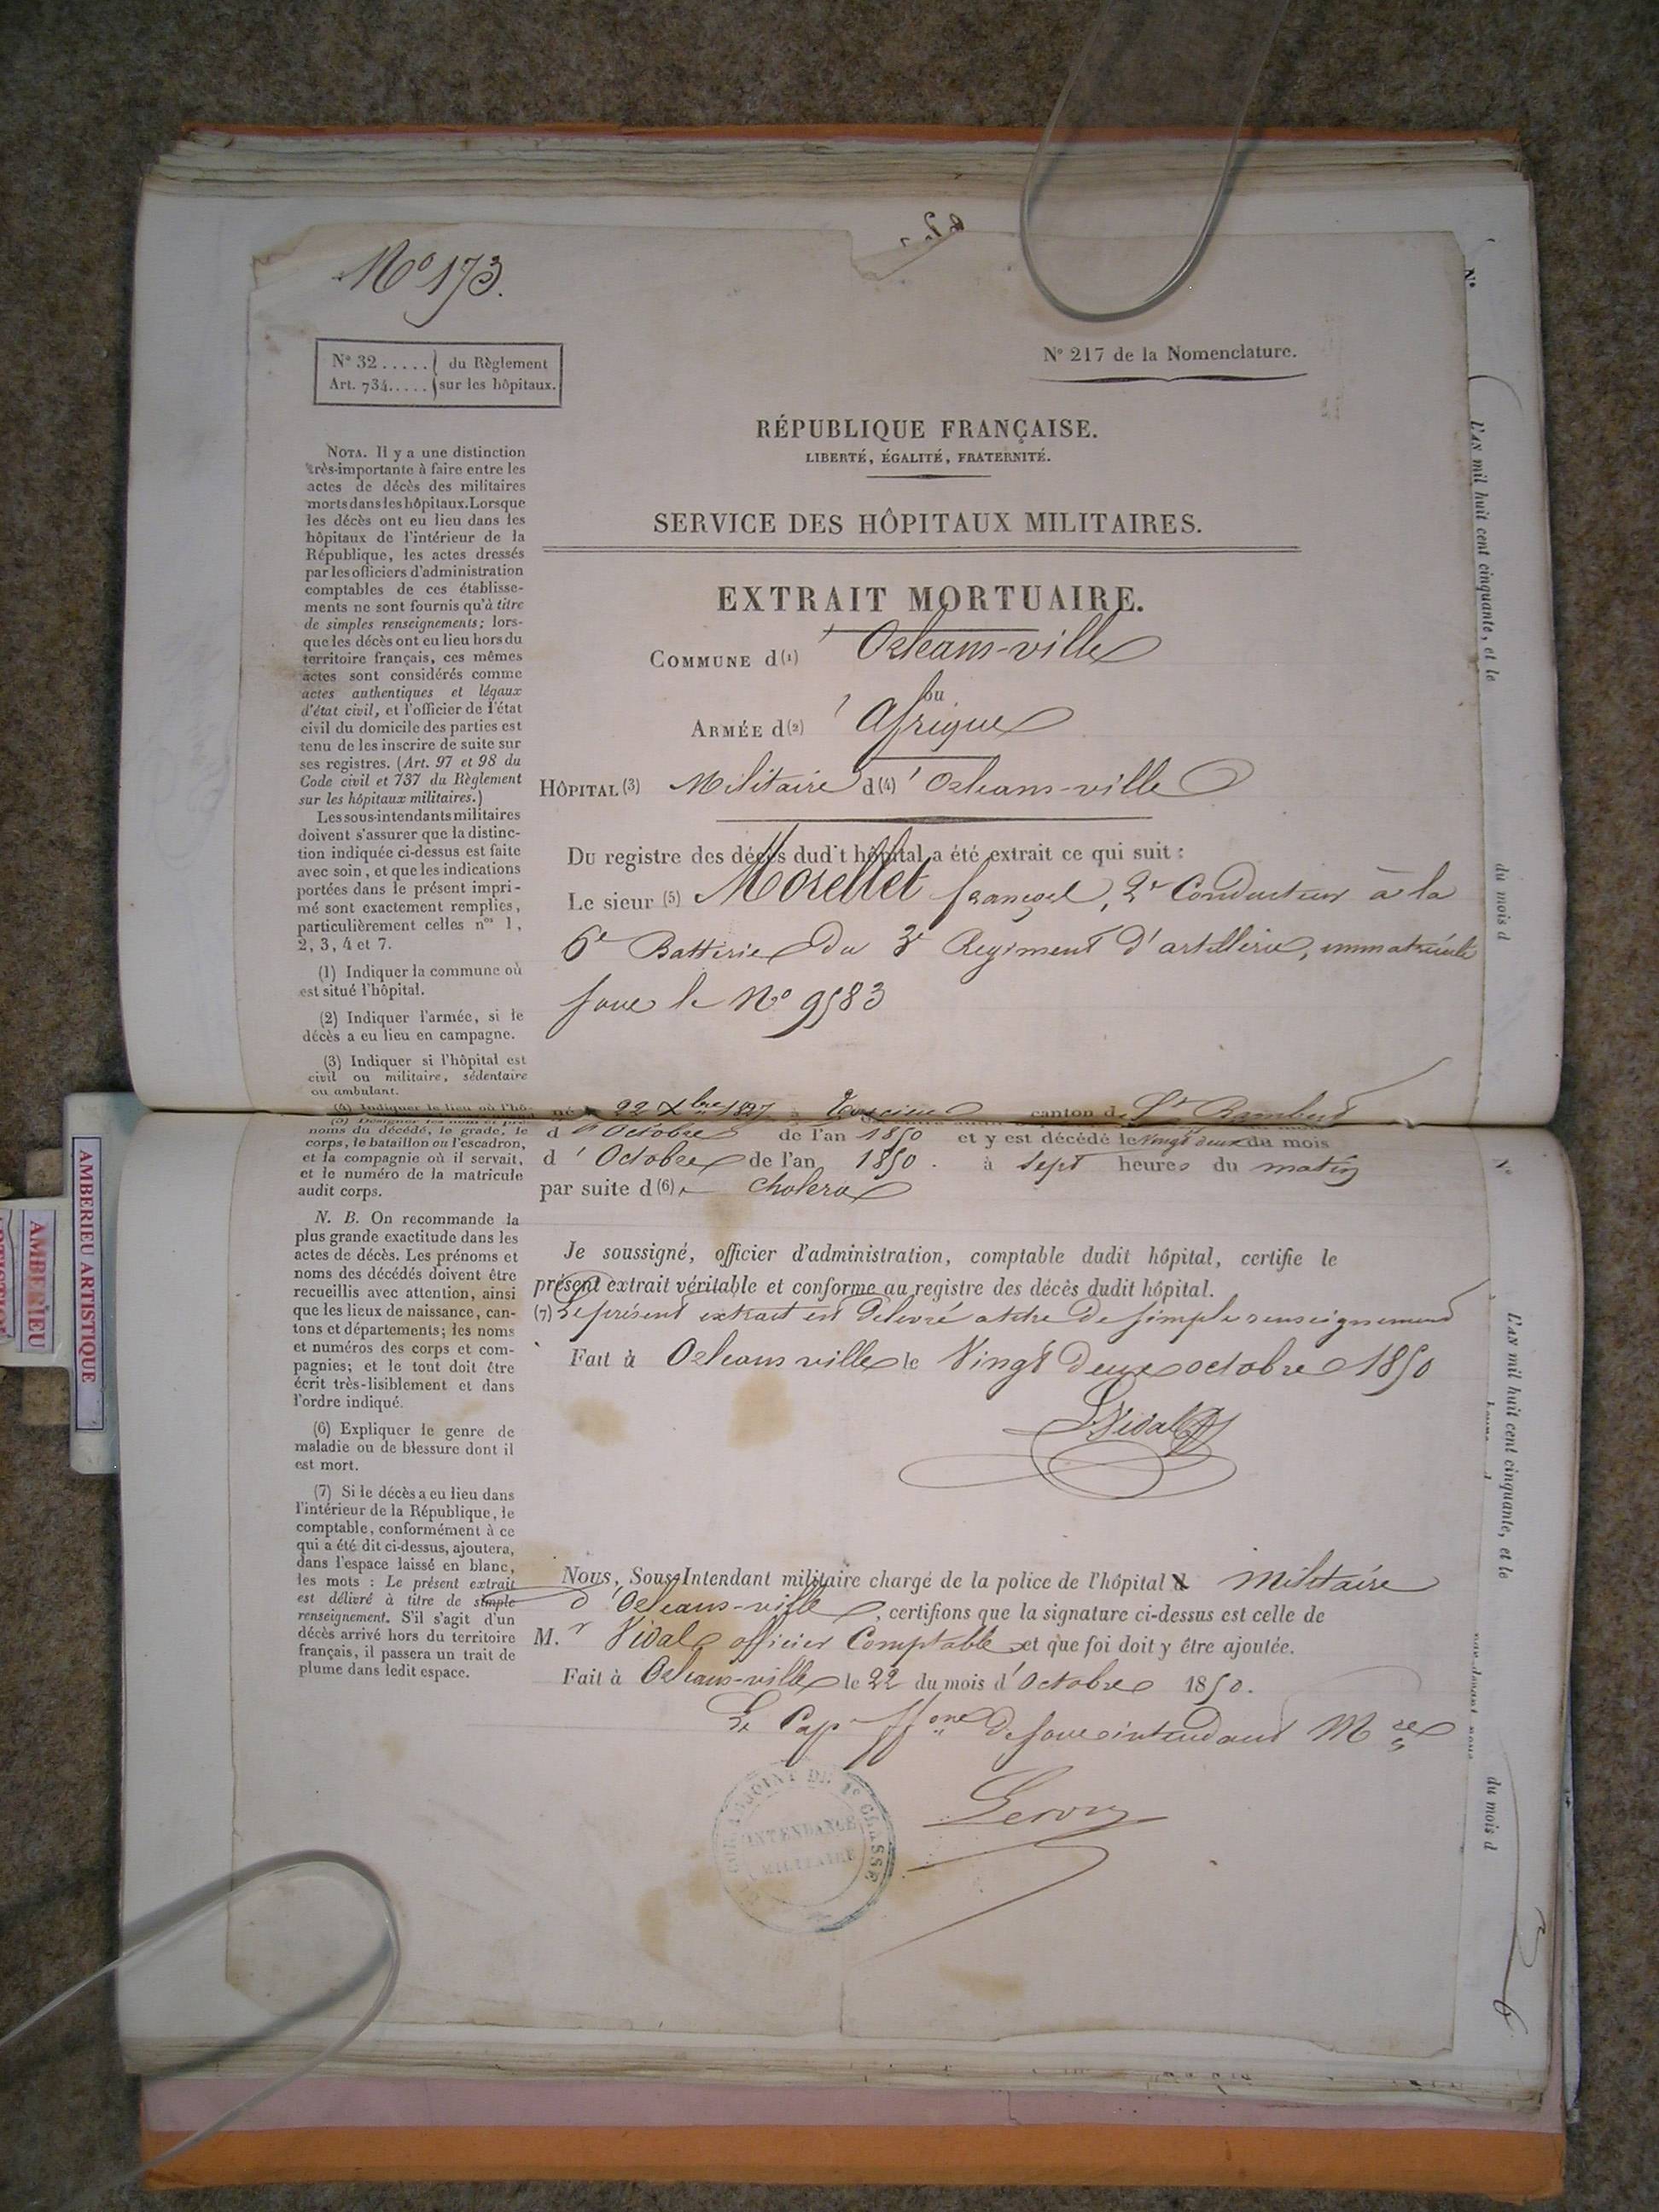 No 173.
No 32..... du Règlement
Art. 734..... sur les hôpitaux.
No 217 de la Nomenclature.
RÉPUBLIQUE FRANÇAISE.
LIBERTÉ, ÉGALITÉ, FRATERNITÉ.
SERVICE DES HÔPITAUX MILITAIRES.
EXTRAIT MORTUAIRE.
COMMUNE d(1) ' Orleans-ville
ou
ARMÉE d(2) ' Afrique
HÔPITAL (3) Militaire d(4) ' Orleans-ville
Du registre des décès dud't hôpital a été extrait ce qui suit :
Le sieur (5) Morellet françois, 2e Conducteur à la
6e Batterie du 3e Regiment d'artillerie, immatricule
sous le No 9583
né le 22 Xbre 1827 à canton de St Rambert
d' Octobre de l'an 1850 et y est décédé le vingt deux du mois
d' Octobre de l'an 1850. à sept heures du matin
par suite d(6)e cholera
Je soussigné, officier d'administration, comptable dudit hôpital, certifie le
présent extrait véritable et conforme au registre des décès dudit hôpital.
(7) Le présent extrait est delivré atitre de simple renseignement
Fait à Orleans ville le Vingt deux octobre 1850
Vidal
Nous, Sous-Intendant militaire chargé de la police de l'hôpital d Militaire
d'Orleans-ville, certifions que la signature ci-dessus est celle de
M.r Vidal officier Comptable et que foi doit y être ajoutée.
Fait à Orleans-ville le 22 du mois d'Octobre 1850.
Le Cap ff one de sous intendant Mre
Leroy
ADJOINT DE 1e CLASSE
INTENDANCE
MILITAIRE
NOTA. Il y a une distinction
très-importante à faire entre les
actes de décès des militaires
morts dans les hôpitaux. Lorsque
les décès ont eu lieu dans les
hôpitaux de l'intérieur de la
République, les actes dressés
par les officiers d'administration
comptables de ces établisse-
ments ne sont fournis qu'à titre
de simples renseignements; lors-
que les décès ont eu lieu hors du
territoire français, ces mêmes
actes sont considérés comme
actes authentiques et légaux
d'état civil, et l'officier de l'état
civil du domicile des parties est
tenu de les inscrire de suite sur
ses registres. (Art. 97 et 98 du
Code civil et 737 du Règlement
sur les hôpitaux militaires.)
Les sous-intendants militaires
doivent s'assurer que la distinc-
tion indiquée ci-dessus est faite
avec soin, et que les indications
portées dans le présent impri-
mé sont exactement remplies,
particulièrement celles nos 1,
2, 3, 4 et 7.
(1) Indiquer la commune où
est situé l'hôpital.
(2) Indiquer l'armée, si le
décès a eu lieu en campagne.
(3) Indiquer si l'hôpital est
civil ou militaire, sédentaire
ou ambulant.
(4) Indiquer le lieu où l'hô-
(5) Désigner les nom et pré-
noms du décédé, le grade, le
corps, le bataillon ou l'escadron,
et la compagnie où il servait,
et le numéro de la matricule
audit corps.
N. B. On recommande la
plus grande exactitude dans les
actes de décès. Les prénoms et
noms des décédés doivent être
recueillis avec attention, ainsi
que les lieux de naissance, can-
tons et départements; les noms
et numéros des corps et com-
pagnies; et le tout doit être
écrit très-lisiblement et dans
l'ordre indiqué.
(6) Expliquer le genre de
maladie ou de blessure dont il
est mort.
(7) Si le décès a eu lieu dans
l'intérieur de la République, le
comptable, conformément à ce
qui a été dit ci-dessus, ajoutera,
dans l'espace laissé en blanc,
les mots : Le présent extrait
est délivré à titre de simple
renseignement. S'il s'agit d'un
décès arrivé hors du territoire
français, il passera un trait de
plume dans ledit espace.
No
L'AN mil huit cent cinquante, et le
du mois d
No
L'AN mil huit cent cinquante, et le
du mois d
AMBERIEU ARTISTIQUE
AMBERIEU